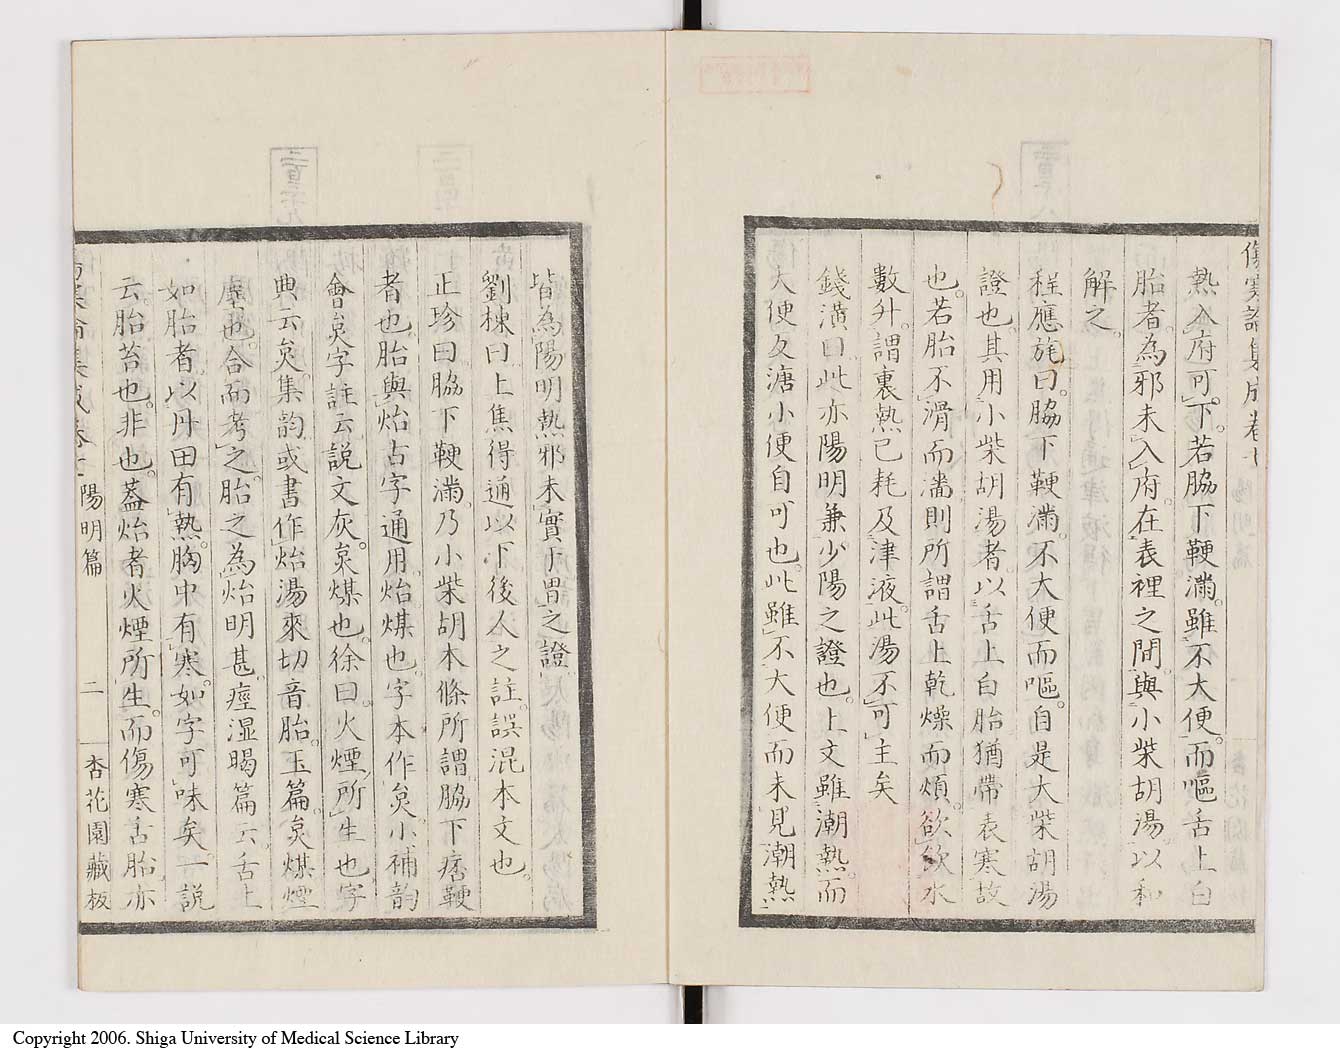 傷寒論集成卷七 陽明篇
熱入府可下。若脇下鞕滿。雖不大便。而嘔舌上白
胎者。為邪未入府。在表裡之間。與小柴胡湯。以和
解之。
程應旄曰。脇下鞕滿。不大便而嘔。自是大柴胡湯
證也。其用小柴胡湯者。以舌上白胎猶帶表寒故
也。若胎不滑而濇則所謂舌上乾燥而煩。欲飲水
數升。謂裏熱已耗及津液。此湯不可主矣
錢潢曰。此亦陽明兼少陽之證也。上文雖潮熱。而
大便反溏小便自可也。此雖不大便而未見潮熱
皆為陽明熱邪未實于胃之證
劉棟曰。上焦得通以下後人之註。誤混本文也。
正珍曰。脇下鞕滿。乃小柴胡本條所謂脇下痞鞕
者也。胎與炲古字通用。炲煤也。字本作炱。小補韵
會炱字註云。說文灰。炱煤也。徐曰。火煙所生也字
典云炱集韵或書作炲湯來切音胎。玉篇。炱煤煙
塵也。合而考之。胎之為炲明甚。痙湿暍篇云。舌上
如胎者。以丹田有熱。胸中有寒。如字可味矣。一說
云。胎苔也。非也。蓋炲者火煙所生。而傷寒舌胎。亦
陽明篇 二 杏花園藏板
Copyright 2006. Shiga University of Medical Science Library